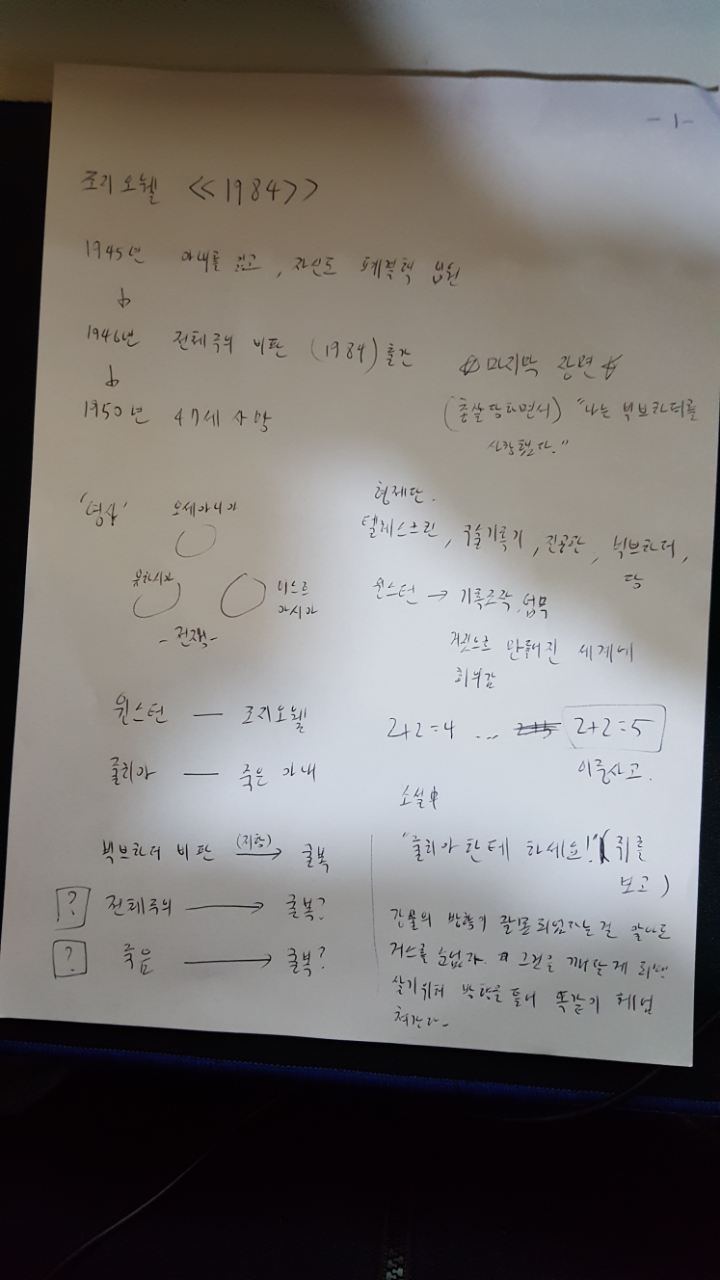 - 1 -
조지오웰 <<1984>>
1945년 아내를 잃고, 자신도 폐결핵 입원
↓
1946년 전체주의 비판 (1984) 출간
↓
1950년 47세 사망
☆마지막 장면☆
(총살당하면서) "나는 빅브라더를
사랑했다."
'영사' 오세아니아
유라시아
이스트
아시아
- 전쟁 -
형제단.
텔레스크린, 구술기록기, 진공관, 빅브라더,
당
윈스턴 → 기록조작 업무
거짓으로 만들어진 세계에
회의감
윈스턴 — 조지오웰
줄리아 — 죽은 아내
2+2=4 ... 2+2=5
이중사고.
빅브라더 비판 (저항) → 굴복
? 전체주의 → 굴복?
? 죽음 → 굴복?
소설中
"줄리아한테 하세요!" (쥐를
보고)
강물의 방향이 잘못되었다는걸 알아도
거스를 순없다. 그것을 깨닫게 되면
살기위해 방향을 틀어 똑같이 헤엄
쳐간다.